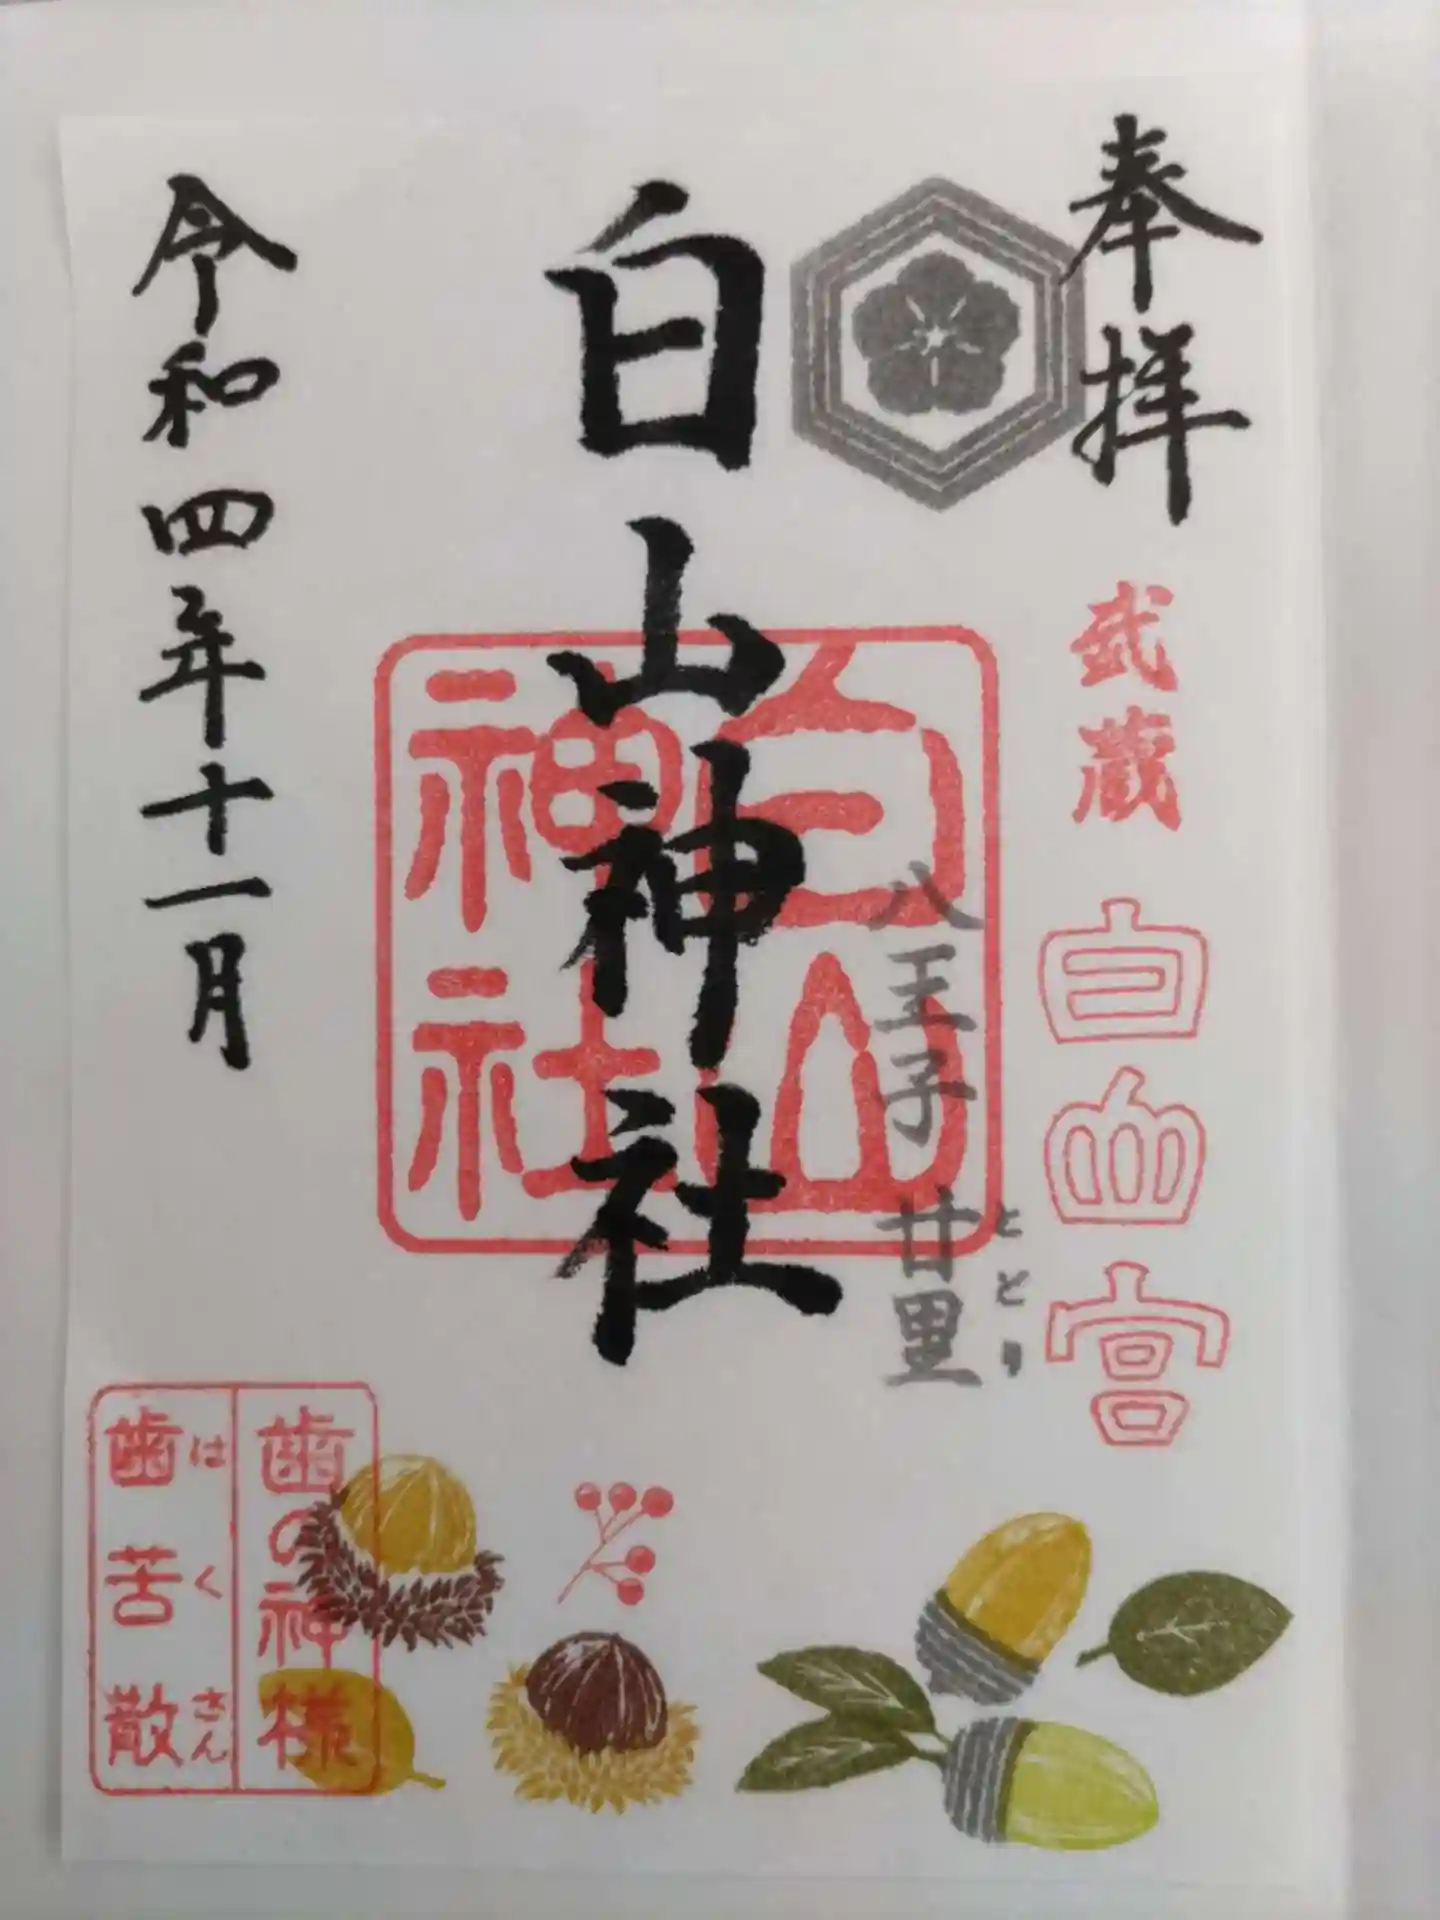 奉拝
武蔵
白山宮
八王子 廿里
ととり
白山神社
白山
神社
令和四年十一月
歯の神様
歯苦散
はくさん